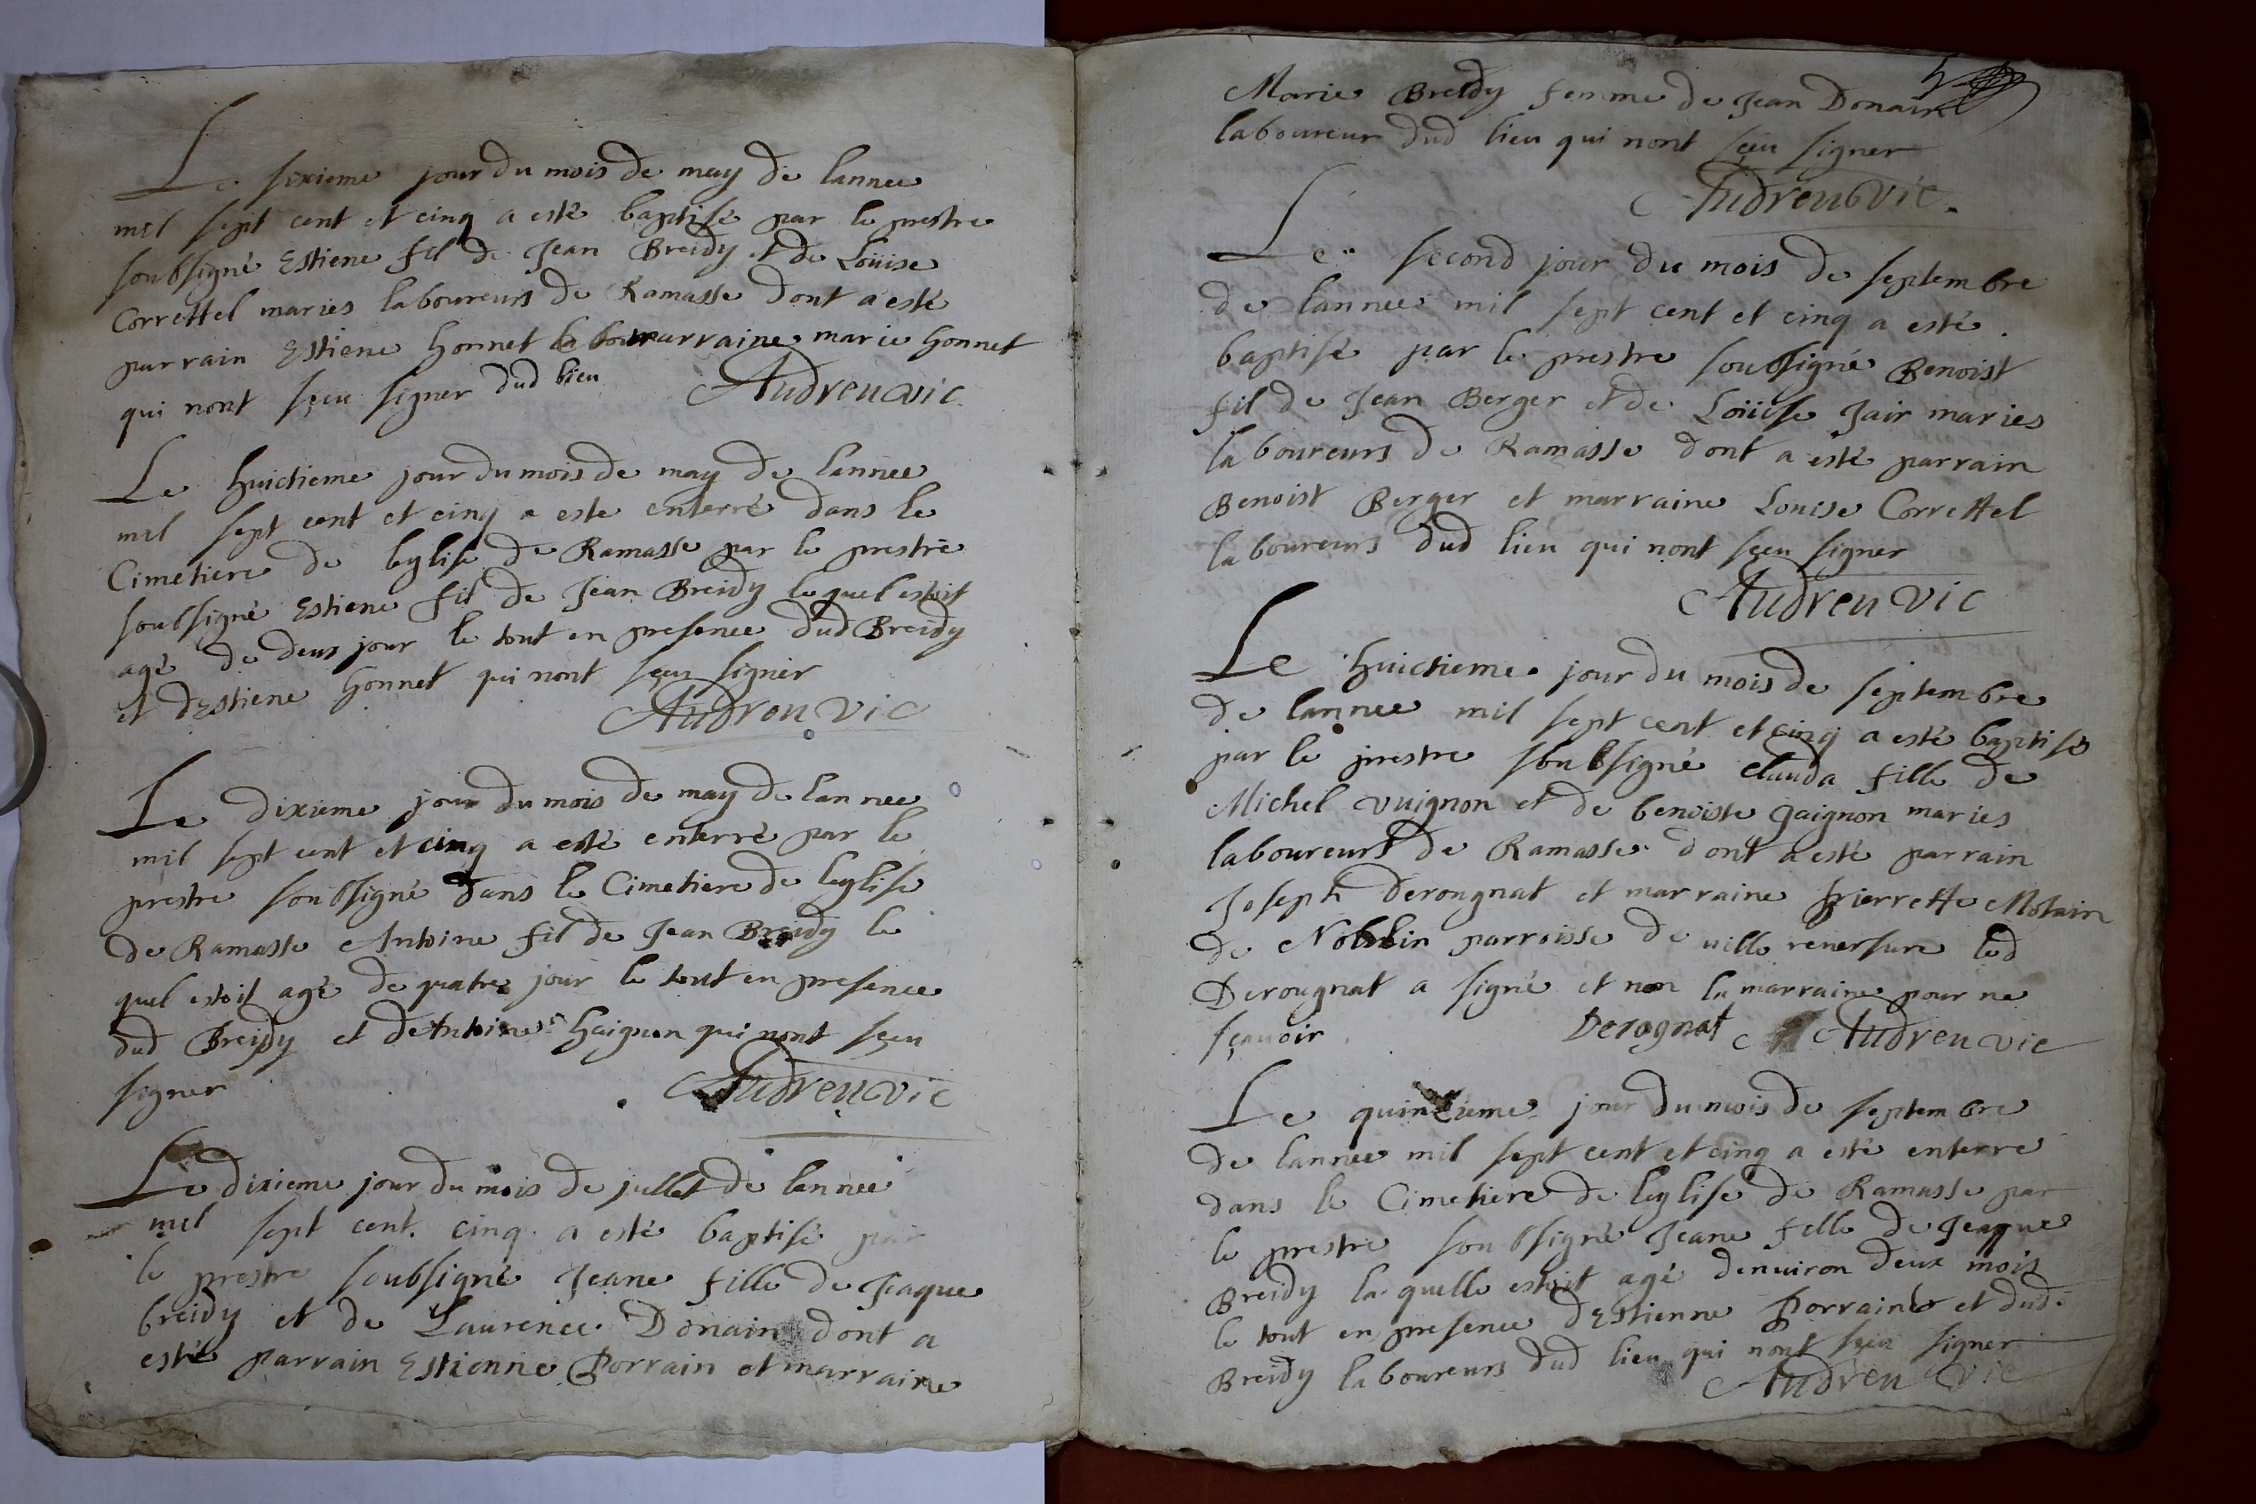 Le sixieme jour du mois de may de lannee
mil sept cent et cinq a esté baptisé par le prestre
soubsigné Estiene fil de Jean Breidy et de Loüise
Correttel maries laboureurs de Ramasse dont a esté
parrain Estiene honnet marraine marie honnet
qui nont sçeu signer dud lieu Audreu vic
Le huictieme jour du mois de may de lannee
mil sept cent et cinq a este enterré dans le
Cimetiere de leglise de Ramasse par le prestre
soubsigné Estiene fil de Jean Breidy lequel estoit
agé de deux jour le tout en presence dud Breidy
et dEstiene honnet qui nont sçeu signer
Audreu vic
Le dixieme jour du mois de may de lannee
mil sept cent et cinq a esté enterré par le
prestre soubsigné dans le Cimetiere de leglise
de Ramasse Antoine fil de Jean Breidy le
quel estoit agé de quatre jour le tout en presence
dud Breidy et de Antoine haignon qui nont sçeu
signer Audreu vic
Le dixieme jour du mois de jullet de lannee
mil sept cent cinq a esté baptisé par
le prestre soubsigné Jeane fille de Jeaque
breidy et de Laurence Donain dont a
esté parrain Estienne Porrain et marraine
Marie Breidy femme de Jean Donain
laboureur dud lieu qui nont sçeu signer
Audreu vic
Le second jour du mois de septembre
de lannee mil sept cent et cinq a esté
baptisé par le prestre soubsigné Benoist
fil de Jean Berger et de Loüise Jair maries
laboureurs de Ramasse dont a esté parrain
Benoist Berger et marraine Louise Correttel
laboureurs dud lieu qui nont sçeu signer
Audreu vic
Le huictieme jour du mois de septembre
de lannee mil sept cent et cinq a esté baptisé
par le prestre soubsigné Clauda fille de
Michel vuignon et de benoiste gaignon maries
laboureurs de Ramasse dont a esté parrain
Joseph derougnat et marraine pierrette Motain
de parroisse de ville reversure led
Derougnat a signé et non la marraine pour ne
sçavoir Derognat Audreu vic
Le quinzieme jour du mois de septembre
de lannee mil sept cent et cinq a esté enterré
dans le Cimetiere de leglise de Ramasse par
le prestre soubsigné Jeane fille de Jeaque
Breidy la quelle estoit agé denviron deux mois
le tout en presence dEstienne Porrain et dud
Breidy laboureurs dud lieu qui nont sçeu signer
Audreu vic